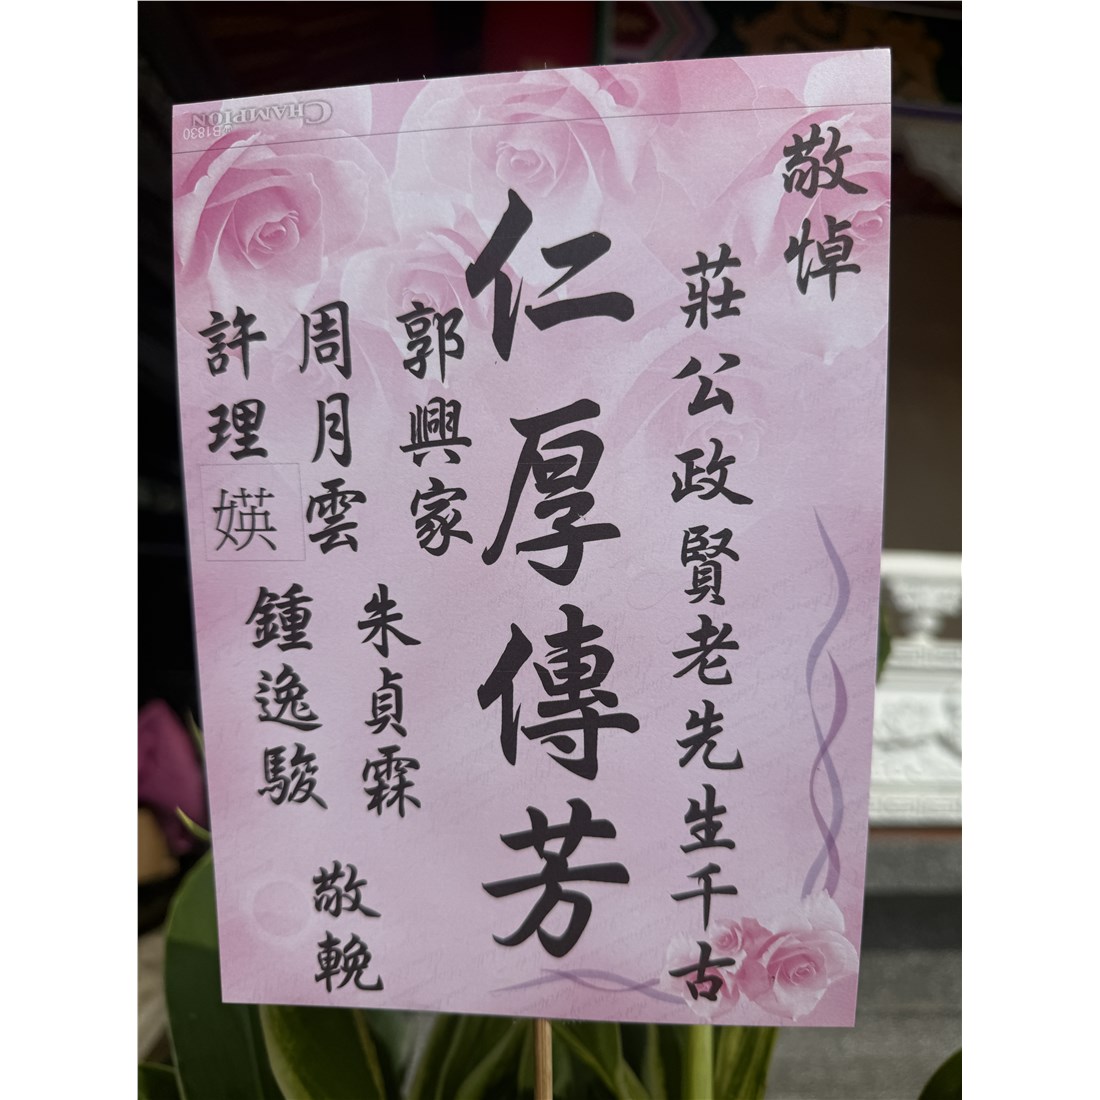 敬悼
莊公政賢老先生千古
仁厚傳芳
郭興家
朱貞霖
周月雲
鍾逸駿
許理媖
敬輓
CHAMPION
WB1830